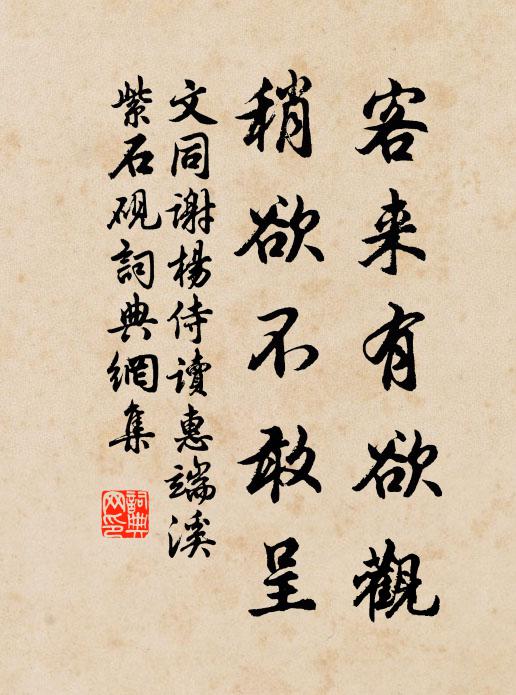 客来有欲觀
稍欲不敢呈
文同謝楊侍讀惠端溪
紫石硯詞典網集
詞典
网印